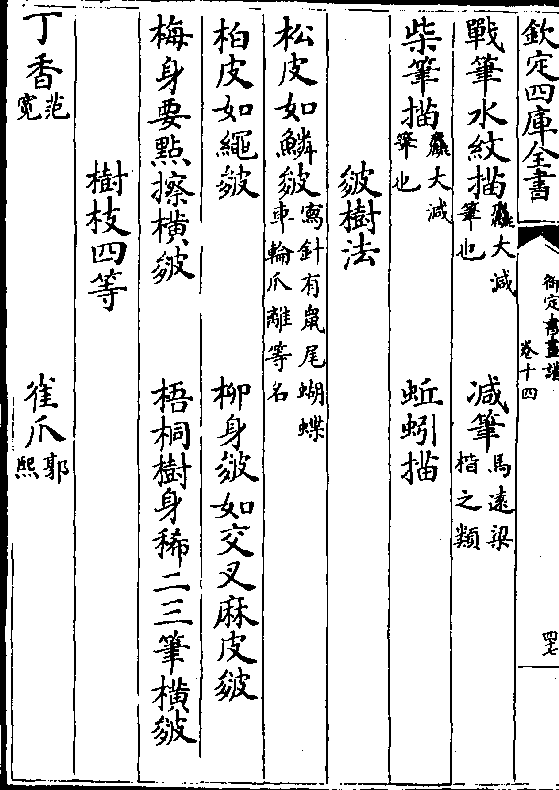 欽定四庫全書
御定書畫譜
卷十四
四七
戰筆水紋描麤大減筆也
減筆馬遠梁楷之類
柴筆描麤大減筆也
蚯蚓描
皴樹法
松皮如鱗皴寫針有鼠尾蝴蝶車輪爪離等名
柏皮如繩皴
柳身皴如交叉麻皮皴
梅身要點擦橫皴
梧桐樹身稀二三筆橫皴
樹枝四等
丁香范寬
雀爪郭熙